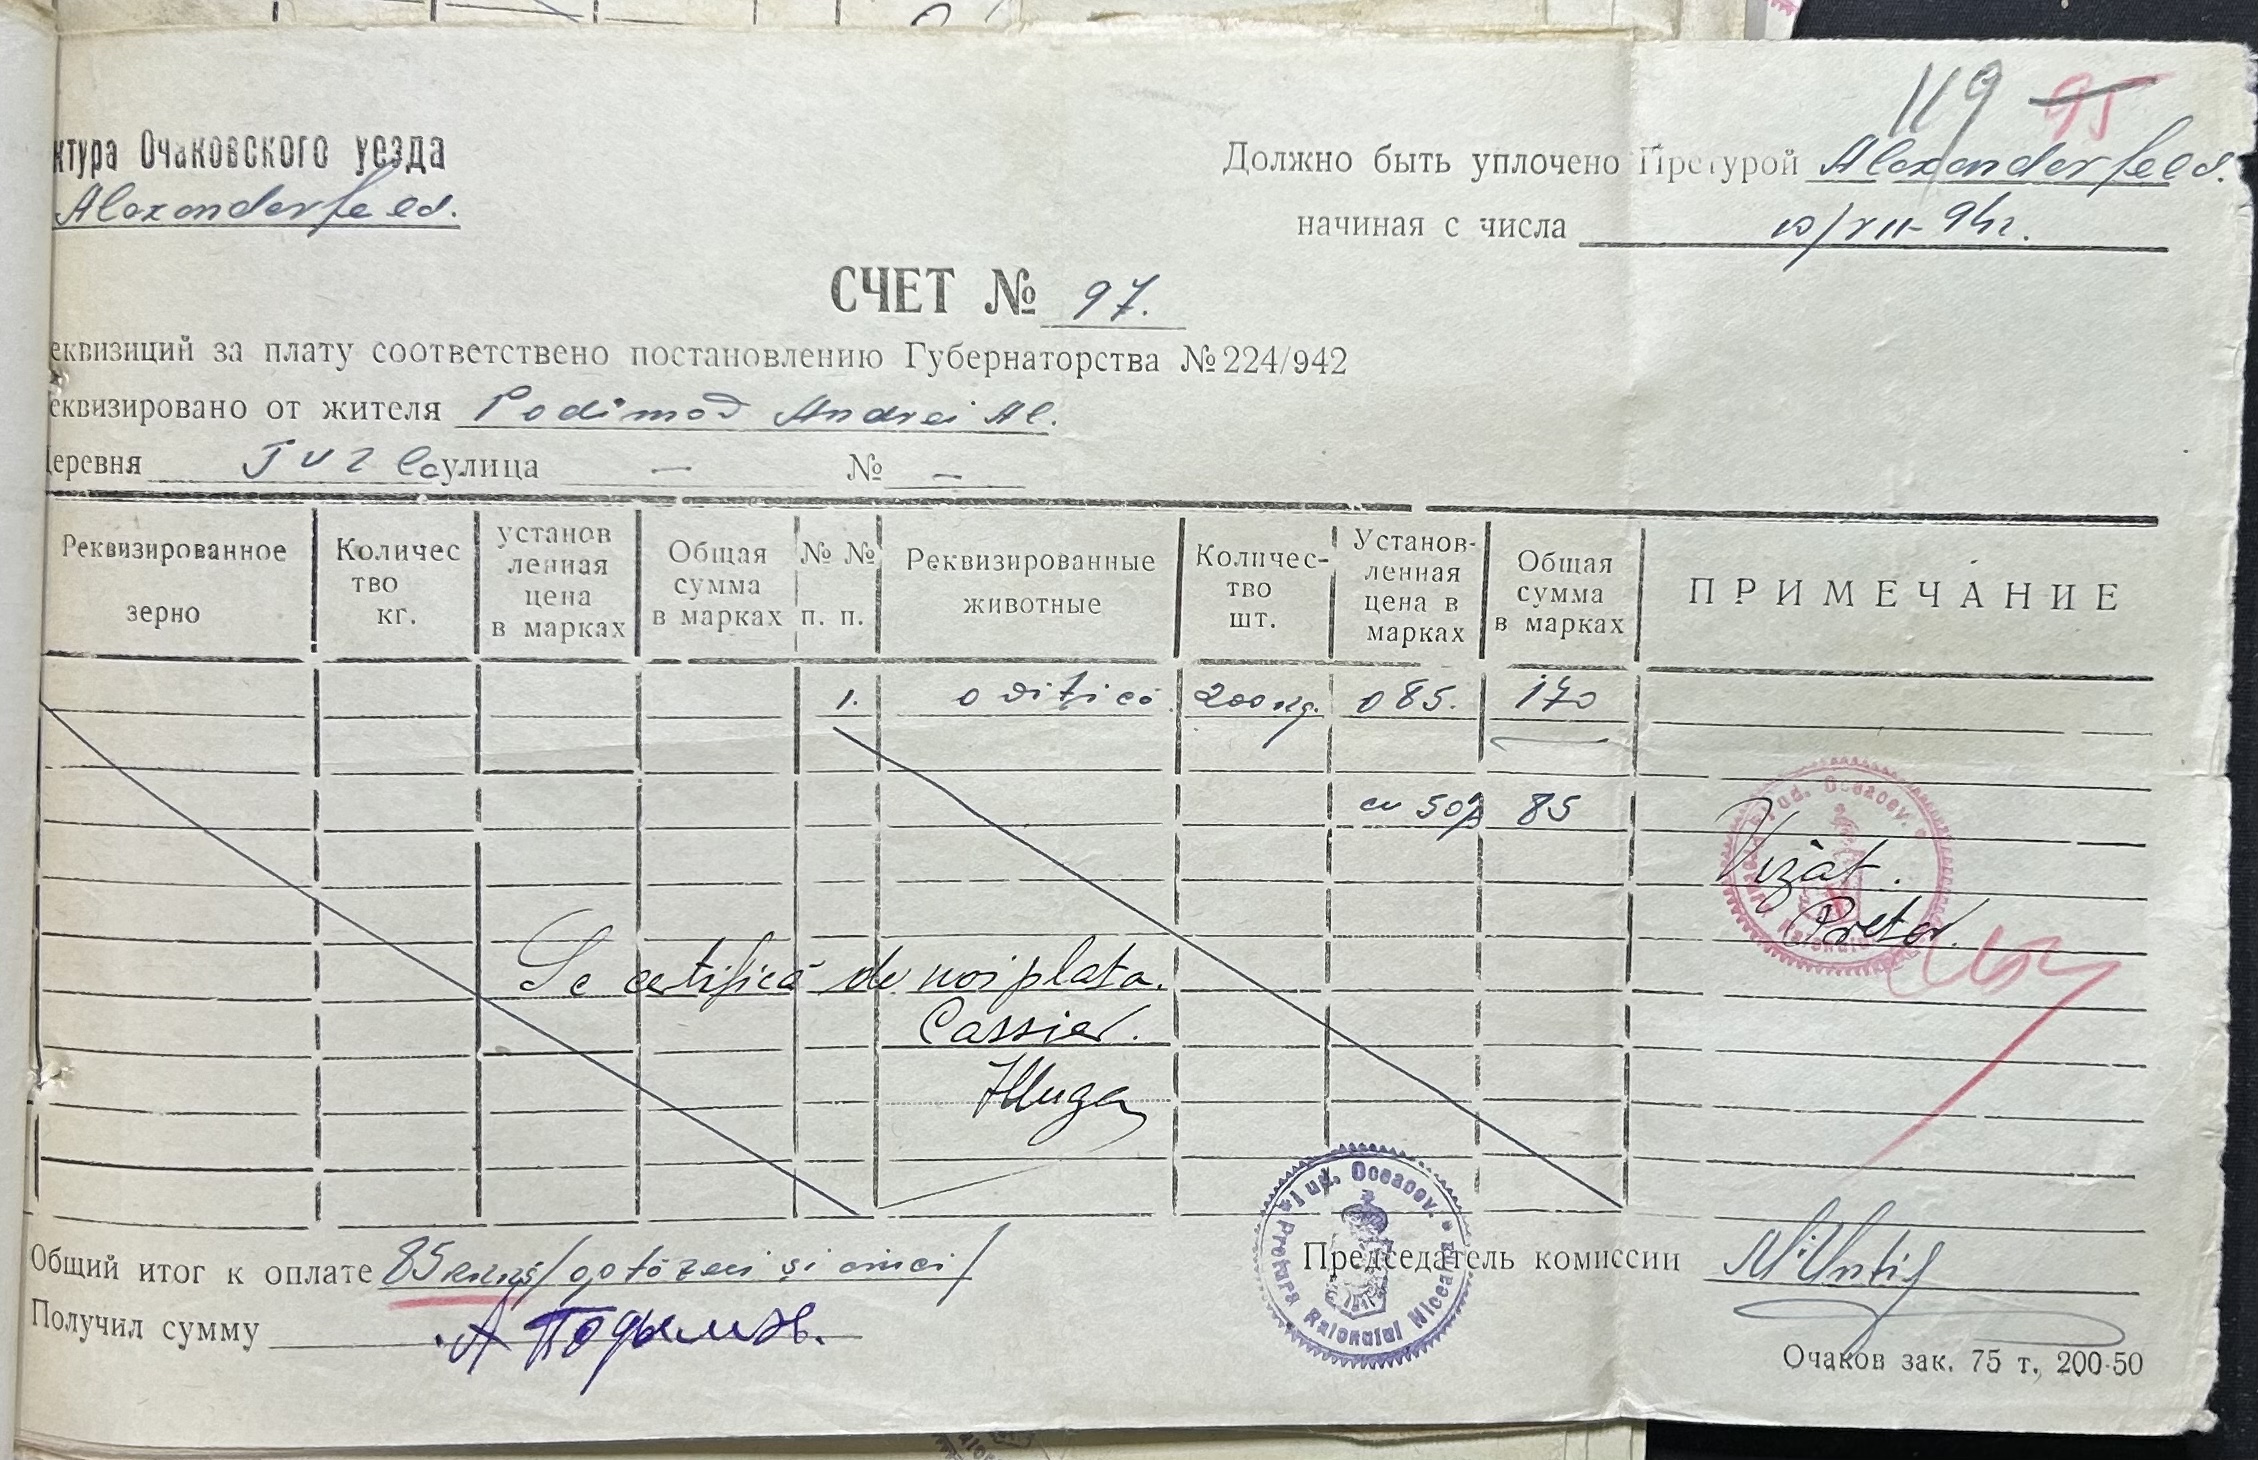 119 95
ктура Очаковского уезда
Alexanderfeld.
Должно быть уплочено Претурой Alexanderfeld.
начиная с числа 10/VII-942.
СЧЕТ № 97.
еквизиций за плату соответствено постановлению Губернаторства №224/942
еквизировано от жителя Podimov Andrei Al.
деревня Tuzla улица — № —
Реквизированное зерно
Количес тво кг.
установ ленная цена в марках
Общая сумма в марках
№ № п. п.
Реквизированные животные
Количес- тво шт.
Установ- ленная цена в марках
Общая сумма в марках
ПРИМЕЧАНИЕ
1. o vițică 200 kg. 0 85. 170
cu 50% 85
Vizat.
Pretor.
Se certifică de noi plata.
Cassier.
Pretura Raionului ud. Oceacov.
Общий итог к оплате 85 /optăzeci și cinci/
Председатель комиссии
Получил сумму А Подымов.
Pretura Raionului Miceani jud. Oceacov.
Очаков зак. 75 т. 200-50